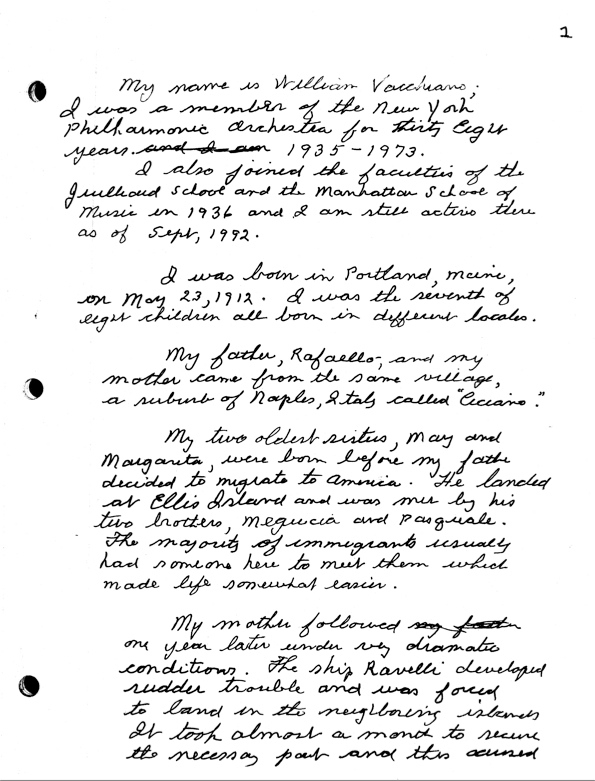 1
My name is William Vacchiano;
I was a member of the New York
Philharmonic Orchestra for thirty Eight
years. and I am 1935-1973.
I also joined the faculties of the
Juilliard School and the Manhattan School of
Music in 1936 and I am still active there
as of Sept, 1992.
I was born in Portland, Maine,
on May 23, 1912. I was the seventh of
eight children all born in different locales.
My father, Rafaello, and my
mother came from the same village,
a suburb of Naples, Italy called "Cicciano."
My two oldest sisters, May and
Margarita, were born before my father
decided to migrate to America. He landed
at Ellis Island and was met by his
two brothers, Megucia and Pasquale.
The majority of immigrants usually
had someone here to meet them which
made life somewhat easier.
My mother followed my father
one year later under very dramatic
conditions. The ship Ravelli developed
rudder trouble and was forced
to land in the neighboring islands
It took almost a month to secure
the necessary part and this caused